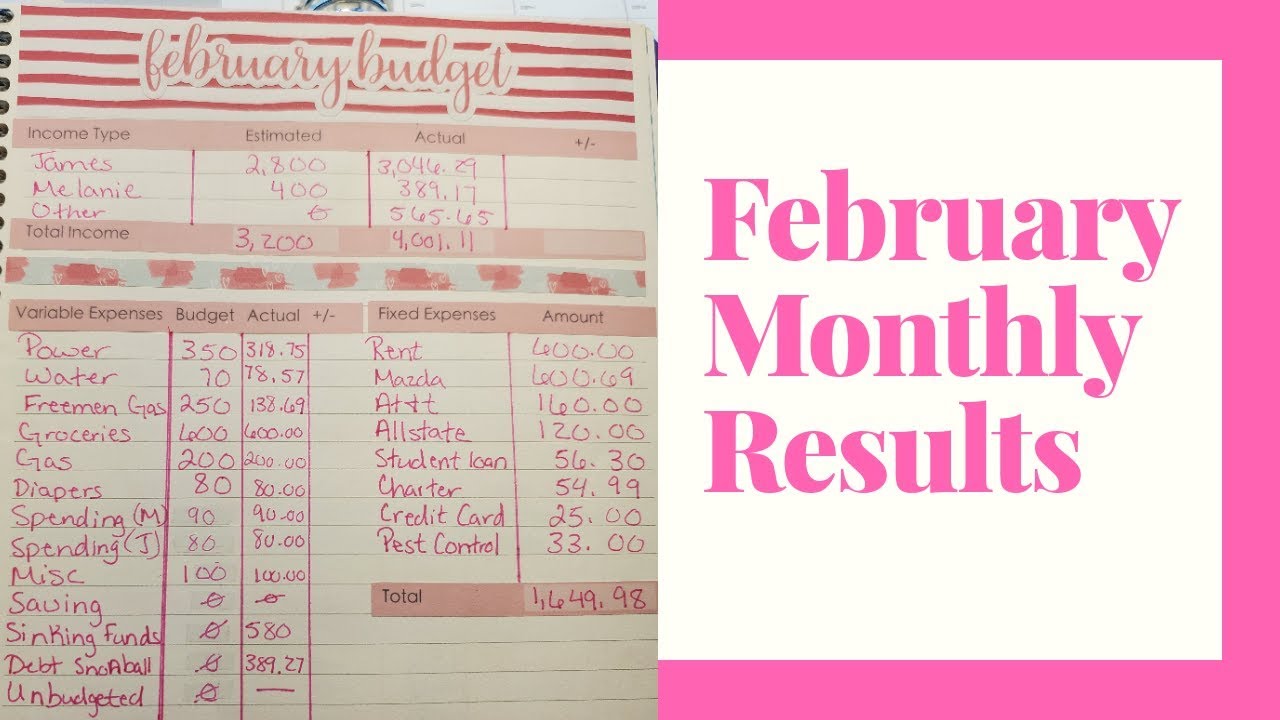 february budget
Income Type Estimated Actual +/-
James 2,800 3,046.29
Melanie 400 389.17
Other 0 565.65
Total Income 3,200 4,001.11
Variable Expenses Budget Actual +/-
Power 350 318.75
Water 70 78.57
Freemen Gas 250 138.69
Groceries 600 600.00
Gas 200 200.00
Diapers 80 80.00
Spending (M) 90 90.00
Spending (J) 80 80.00
Misc 100 100.00
Saving 0 0
Sinking Funds 0 580
Debt Snowball 0 389.27
Unbudgeted 0 —
Fixed Expenses Amount
Rent 600.00
Mazda 600.69
At&t 160.00
Allstate 120.00
Student loan 56.30
Charter 54.99
Credit Card 25.00
Pest Control 33.00
Total 1,649.98
February
Monthly
Results